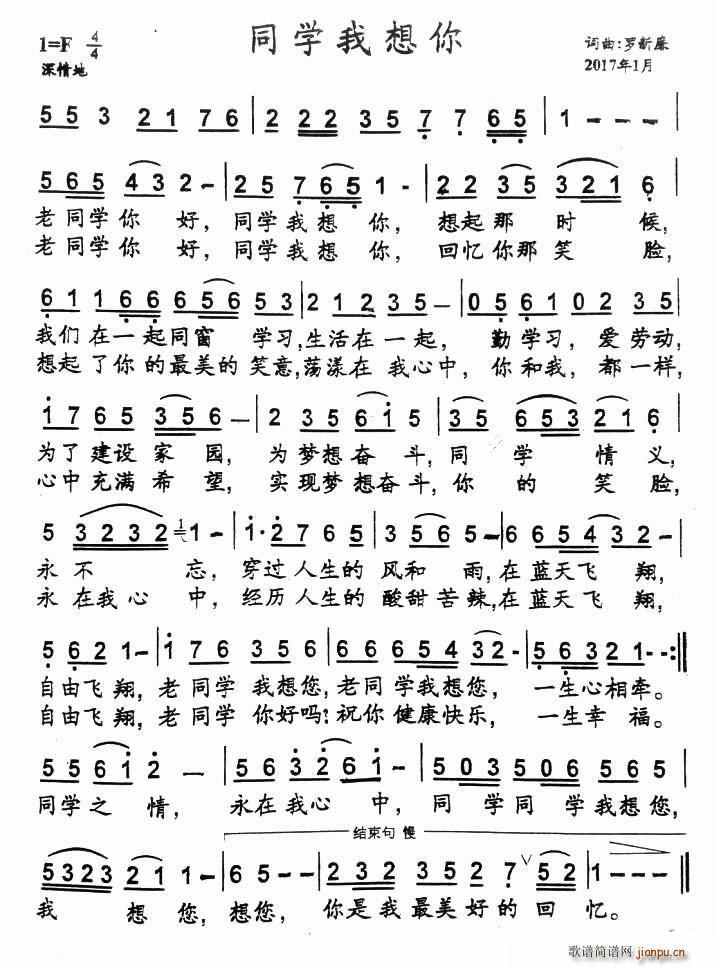 同学我想你
1=F 4/4
深情地
词曲:罗新廉
2017年1月
5 5 3 2 1 7 6 | 2 2 2 2 3 5 7 7 6 5 | 1 - - - |
5 6 5 4 3 2 - | 2 5 7 6 5 1 - | 2 2 3 5 3 2 1 6 |
老同学你 好, 同学我想 你, 想起那 时 候,
老同学你 好, 同学我想 你, 回忆你那笑 脸,
6 1 1 6 6 6 5 6 5 3 | 2 1 2 3 5 - | 0 5 6 1 0 2 3 5 |
我们在一起同窗 学习,生活在一起, 勤学习, 爱劳动,
想起了你的最美的笑意,荡漾在我心中, 你和我, 都一样,
1 7 6 5 3 5 6 - | 2 3 5 6 1 5 | 3 5 6 5 3 2 1 6 |
为了建设家 园, 为梦想奋 斗,同 学 情 义,
心中充满希 望, 实现梦想奋斗,你 的 笑 脸,
5 3 2 3 2 1 - | 1· 2 7 6 5 | 3 5 6 5 - | 6 6 5 4 3 2 - |
永不 忘, 穿过人生的 风和 雨,在蓝天飞 翔,
永在我心 中, 经历人生的 酸甜苦辣,在蓝天飞 翔,
5 6 2 1 - | 1 7 6 3 5 6 | 6 6 6 5 4 3 2 - | 5 6 3 2 1 - :||
自由飞翔,老同学 我想您,老同学我想您, 一生心相牵。
自由飞翔,老同学 你好吗?祝你健康快乐, 一生幸 福。
5 5 6 1 2 - | 5 6 3 2 6 1 - | 5 0 3 5 0 6 5 0 6 5 |
同学之 情, 永在我心 中, 同 学同 学我想您,
结束句 慢
5 3 2 3 2 1 1 - | 6 5 - - | 2 2 3 2 3 5 2 7 V 5 2 | 1 - - - ||
我 想 您, 想您, 你是我最美好的 回 忆。
歌谱简谱网
jianpu.cn